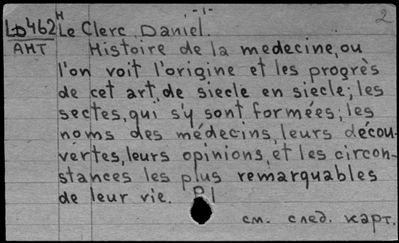 -1- 2
LD462 H Le Clerc, Daniel.
AMT Histoire de la medecine, ou
l'on voit l'origine et les progrès
de cet art, de siecle en siecle; les
sectes, qui s'y sont formées; les
noms des médecins, leurs décou-
vertes, leurs opinions, et les circon-
stances les plus remarquables
de leur vie. P1
см. след. карт.